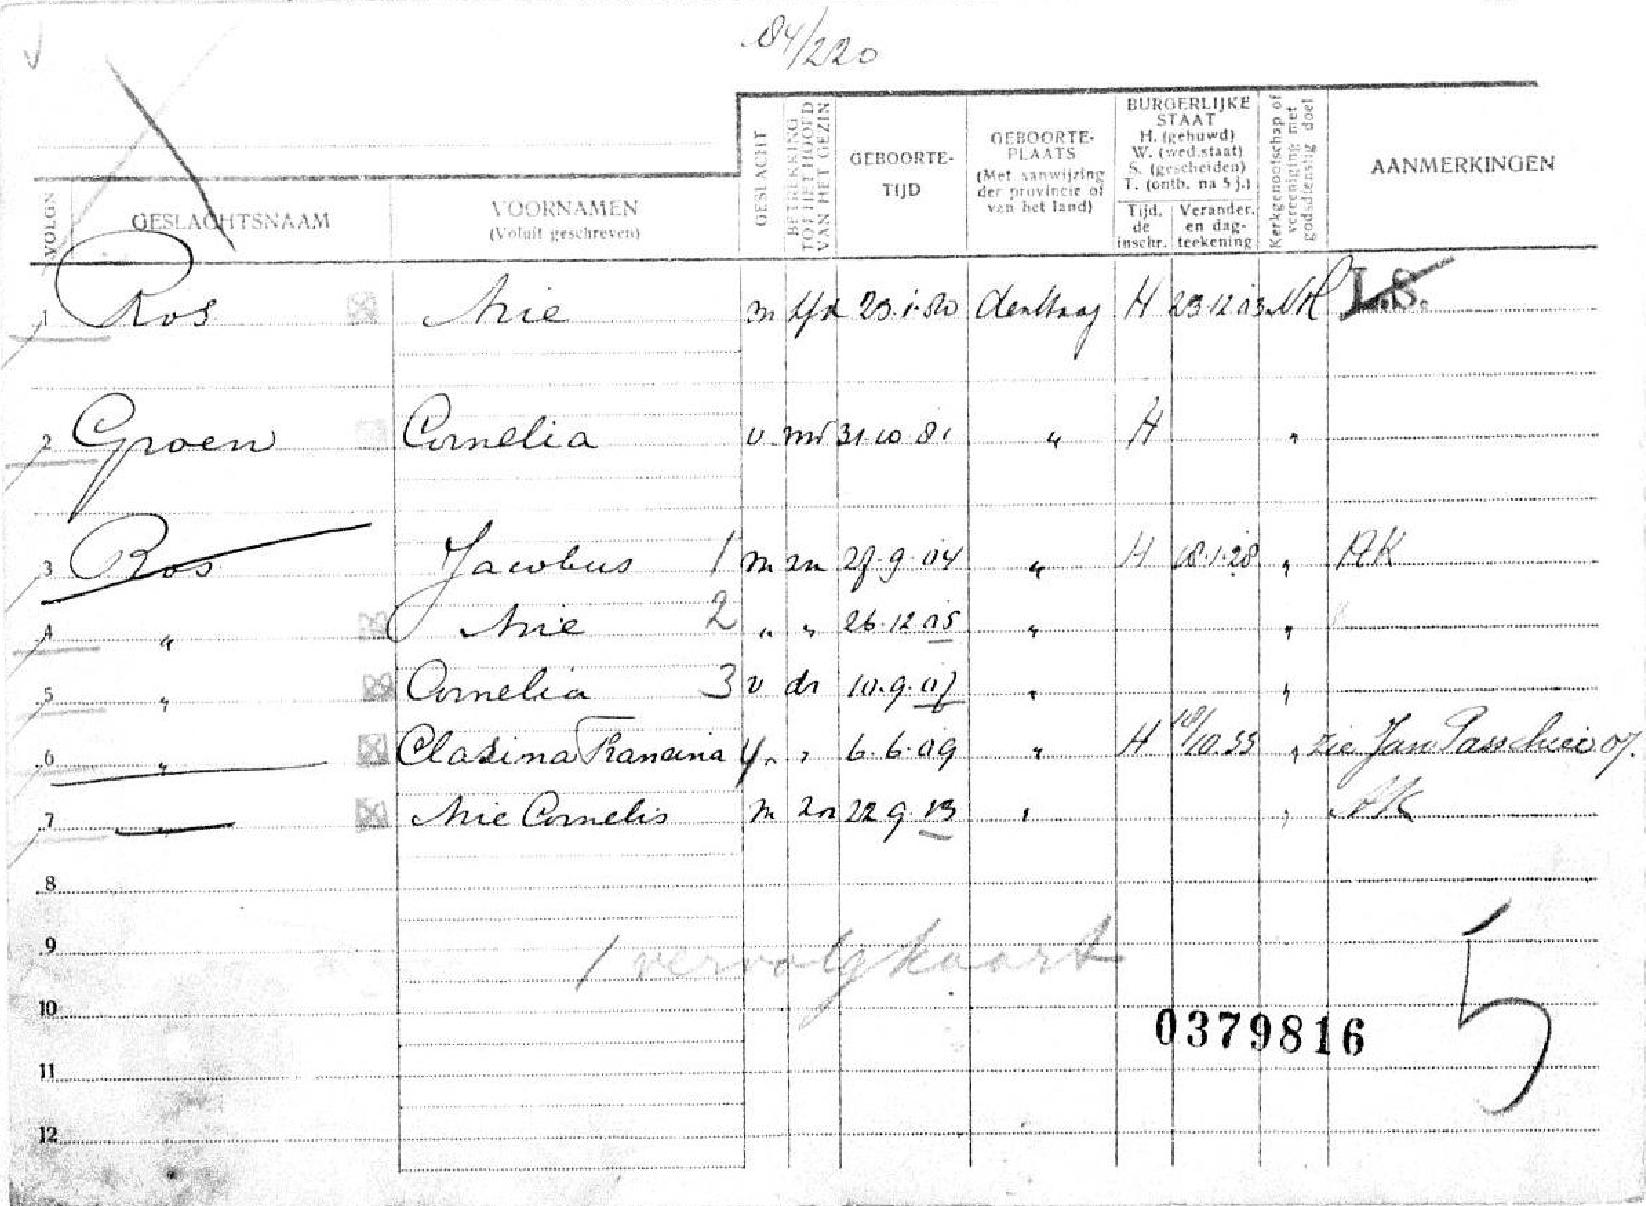 84/220
VOLGN
GESLACHTSNAAM
VOORNAMEN
(Voluit geschreven)
GESLACHT
BETREKKING
TOT HET HOOFD
VAN HET GEZIN
GEBOORTE-
TIJD
GEBOORTE-
PLAATS
(Met aanwijzing
der provincie of
van het land)
BURGERLIJKE
STAAT
H. (gehuwd)
W. (wed.staat)
S. (gescheiden)
T. (ontb. na 5 j.)
Tijd.
de
inschr.
Verander.
en dag-
teekening
Kerkgenootschap of
vereeniging met
godsdienstig doel
AANMERKINGEN
1 Ros Arie m hfd 23.1.80 den Haag H 23.12.03 NH L.S.
2 Groen Cornelia v mr 31 10 81 " H "
3 Ros Jacobus 1 m zn 27.9.04 " H 18.1.28 " AK
4 " Arie 2 " " 26.12.05 " "
5 " Cornelia 3 v dr 10.9.07 " "
6 " Clasina Francina 4 " " 6.6.09 " H /10.33 " zie Jan 07.
7 Arie Cornelis m zn 22 9 13 " " AK
8
9
1 vervolgkaart
10
0379816
5
11
12